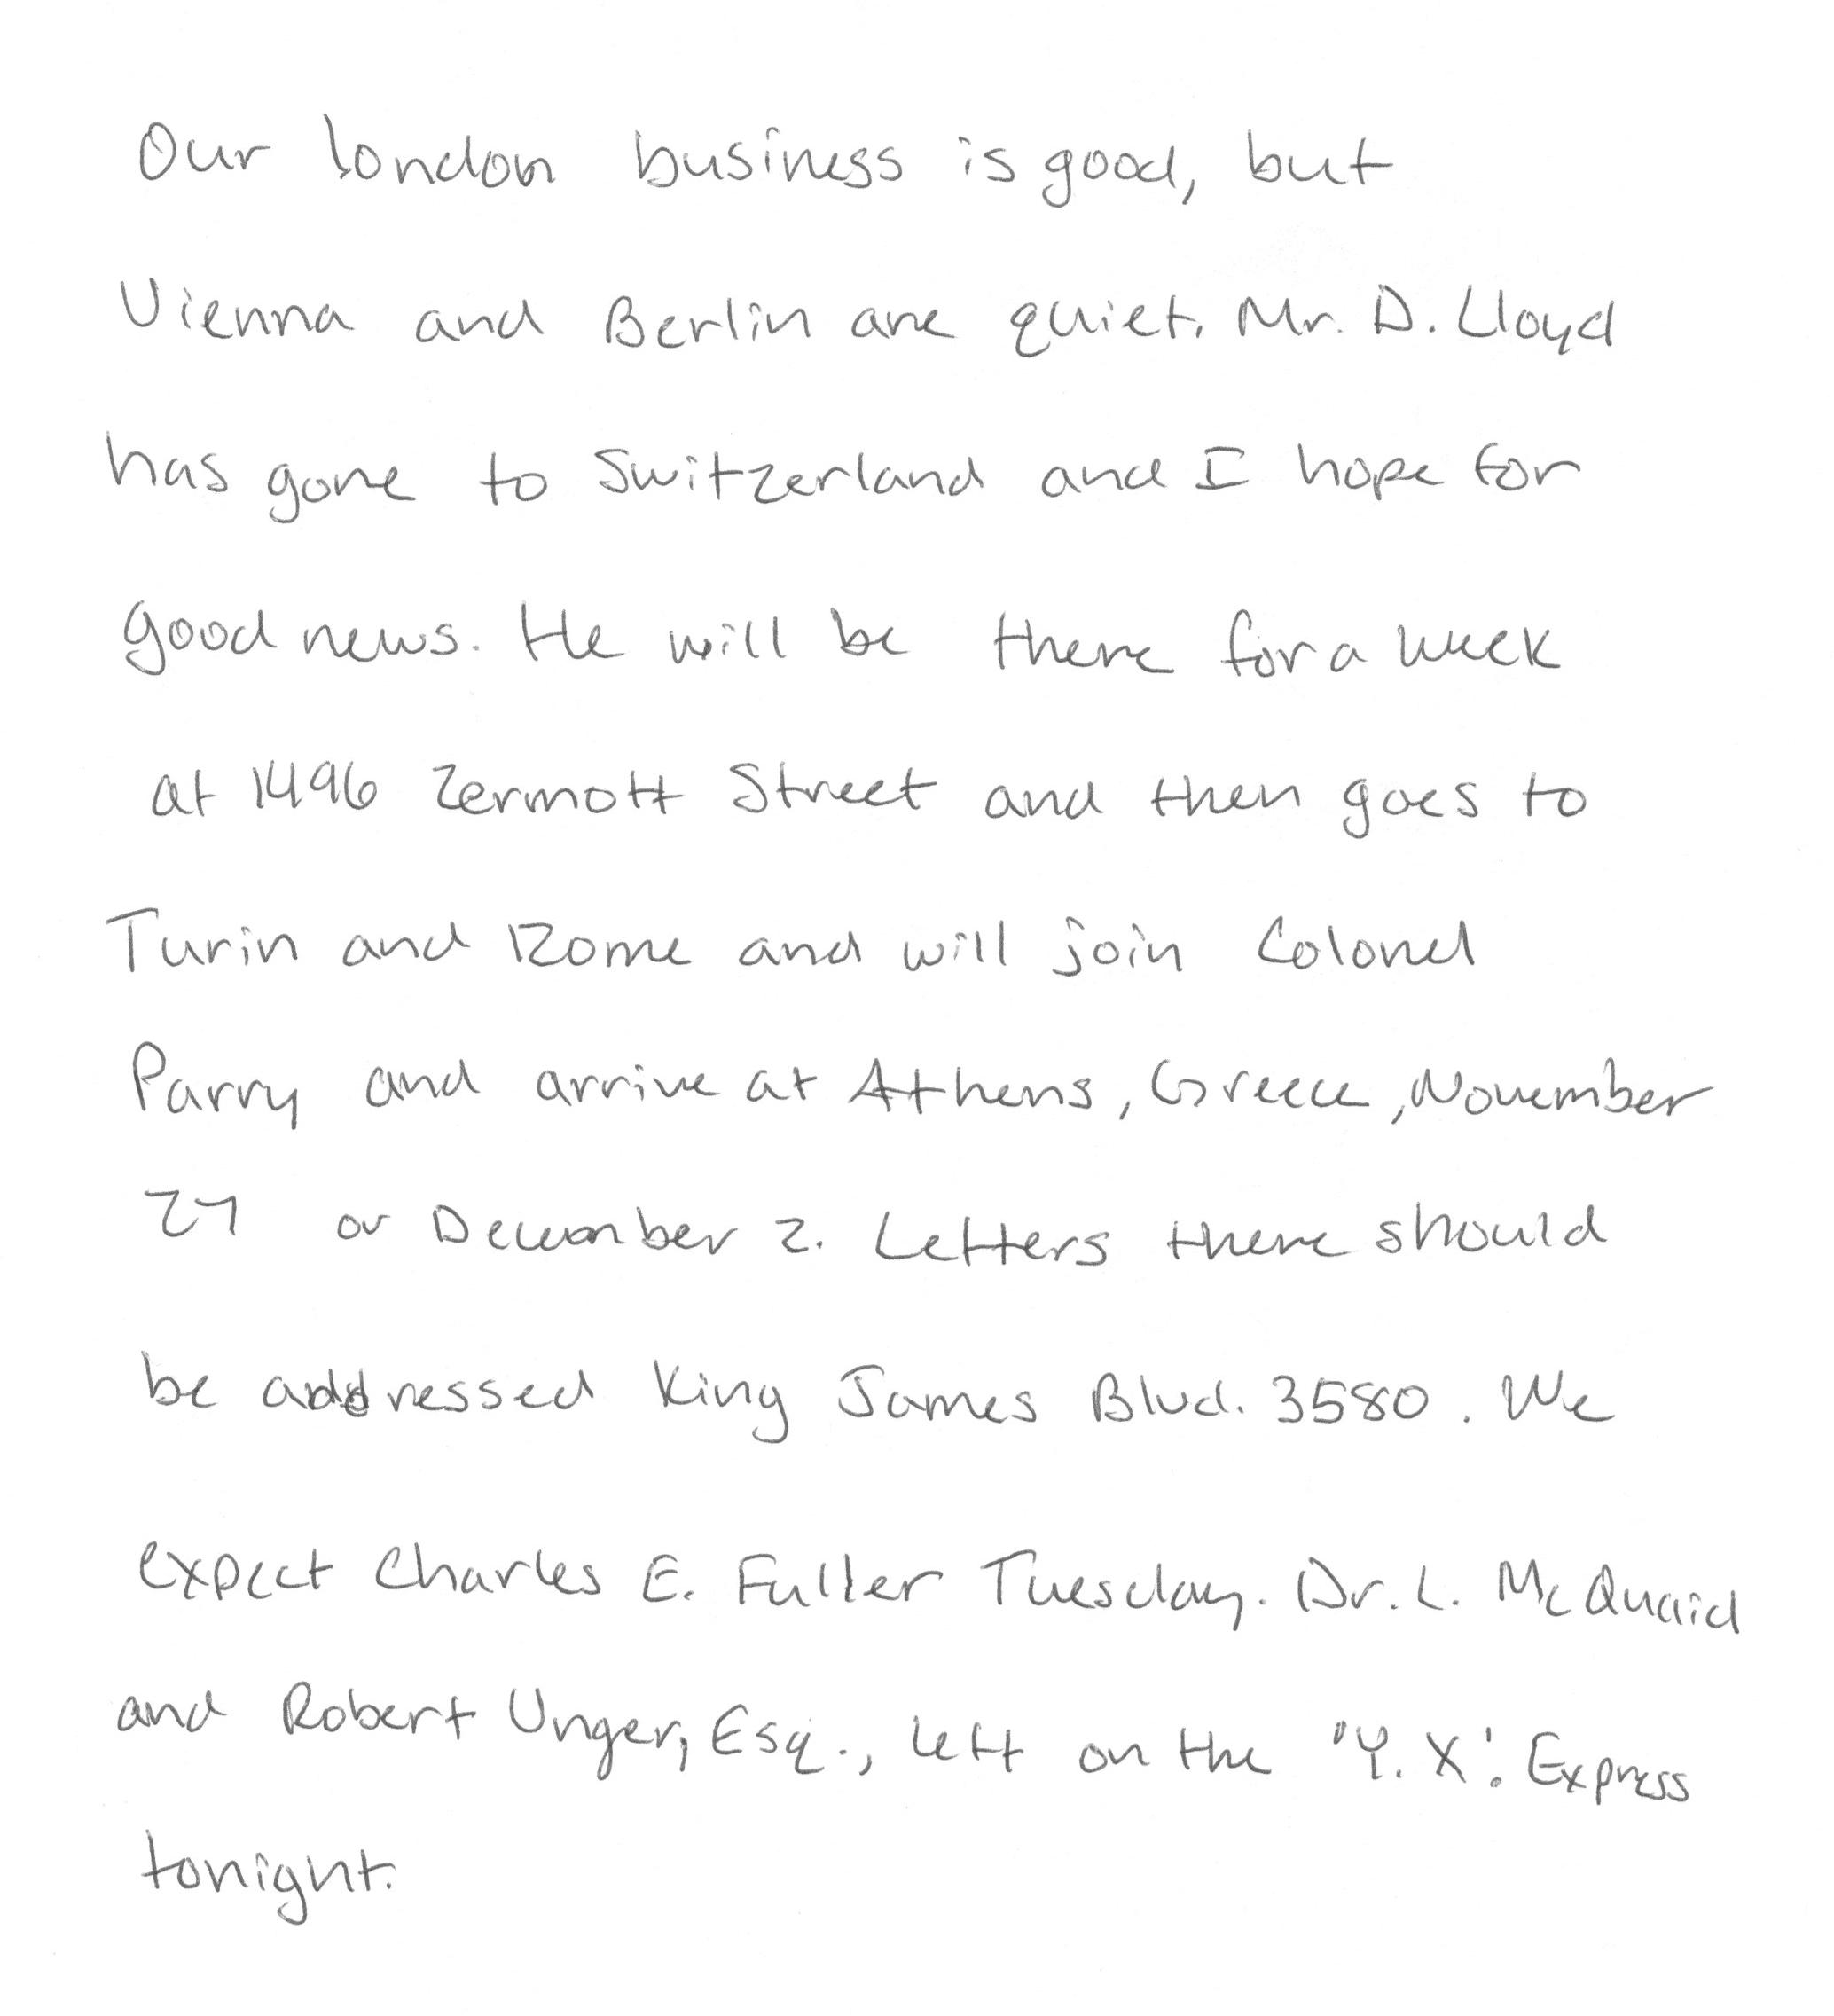 Our London business is good, but
Vienna and Berlin are quiet. Mr. D. Lloyd
has gone to Switzerland and I hope for
good news. He will be there for a week
at 1496 Zermott Street and then goes to
Turin and Rome and will join Colonel
Parry and arrive at Athens, Greece, November
27 or December 2. Letters there should
be addressed King James Blvd. 3580. We
expect Charles E. Fuller Tuesday. Dr. L. McQuaid
and Robert Unger, Esq., left on the "Y. X." Express
tonight.